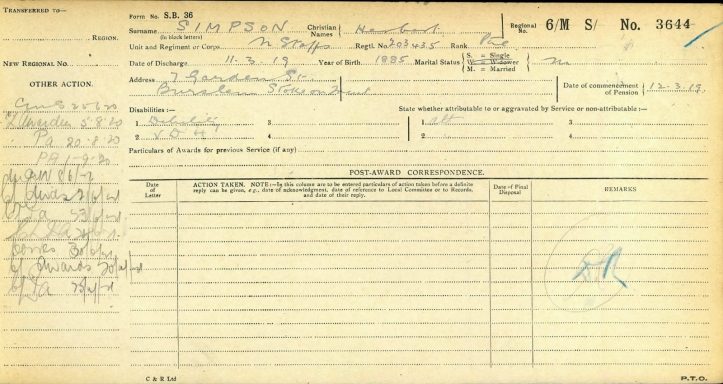 TRANSFERRED TO—
REGION.
NEW REGIONAL No.
OTHER ACTION.
5·8·20
Pa 20·8·20
PA 1-9-20
Form No. S.B. 36
Surname SIMPSON Christian Names Herbert Regional No. 6/M S/ No. 3644
(in block letters)
Unit and Regiment or Corps N Staffs Regtl. No. 203435 Rank Pte
Date of Discharge 11.3.19 Year of Birth 1885 Marital Status S. = Single W. = Widower M. = Married M
Address 7 Garden St. Date of commencement of Pension 12-3-19
Burslem Stoke on Trent
Disabilities:— State whether attributable to or aggravated by Service or non-attributable:—
1. Debility 3. 1. Att 3.
2. V D H 4. 2. 4.
Particulars of Awards for previous Service (if any)
POST-AWARD CORRESPONDENCE.
Date of Letter
ACTION TAKEN. NOTE:—In this column are to be entered particulars of action taken before a definite reply can be given, e.g., date of acknowledgment, date of reference to Local Committee or to Records, and date of their reply.
Date of Final Disposal
REMARKS
C & R Ltd
P.T.O.